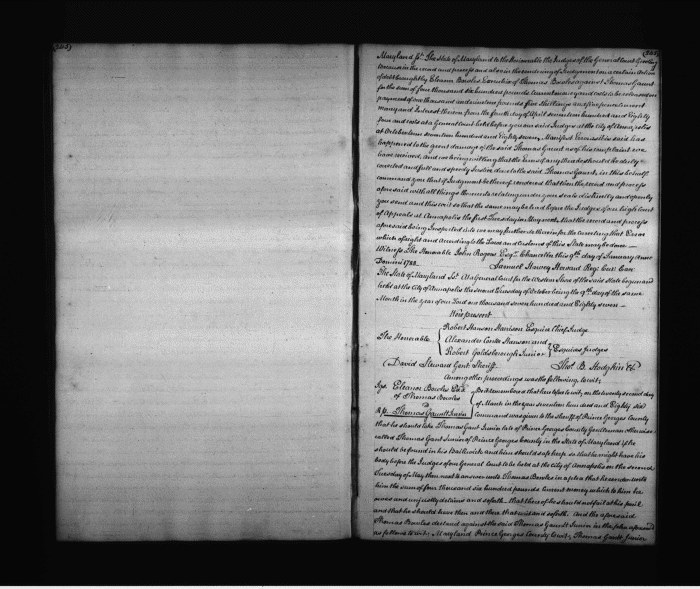 (265)
Maryland Sct. The State of Maryland to the Honorable the Judges of the General Court Greeting
because in the record and process and also in the rendering of Judgment on a certain Action
of debt brought by Eleanor Bowles Executrix of Thomas Bowles against Thomas Gantt
for the sum of four thousand six hundred pounds current money and costs to be released on
payment of one thousand and nineteen pounds five shillings and five pence current
money and Interest thereon from the fourth day of April seventeen hundred and Eighty
four and costs at a General Court held before you our said Judges at the City of Annapolis
at October term seventeen hundred and Eighty seven, Manifest Error as it is said has
happened to the great damage of the said Thomas Gantt as of his complaint we
have received, and we being willing that the Error if any there be should be duly
corrected and full and speedy Justice done to the said Thomas Gantt, in this behalf
command you that if Judgment be thereof rendered that then the record and process
aforesaid with all things thereunto relating under your seals distinctly and openly
you send and this writ so that the same may be had before the Judges of our high Court
of Appeals at Annapolis the first Tuesday in May next, that the record and process
aforesaid being Inspected into we may further do therein for the correcting that Error
which of right and According to the Laws and Customs of this State may be done
Witness The Honorable John Rogers Esqr. Chancellor this 9th day of January Anno
Domini 1788
Samuel Harvey Howard Reg. Cur. Can
The State of Maryland Sct. At a General Court for the Western Shore of the said State begun and
held at the City of Annapolis the second Tuesday of October being the 9th day of the same
Month in the year of our Lord one thousand seven hundred and Eighty seven
Were present
Robert Hanson Harrison Esquire Chief Judge
The Honorable
Alexander Contee Hanson and
Robert Goldsborough Junior
Esquires Judges
David Steward Gent. Sheriff
Thos. B. Hodgkin Ck
Among other proceedings was the following, to wit;
Eleanor Bowles Exx.
of Thomas Bowles
Thomas Gantt Junior
Be it remembered that heretofore to wit, on the twenty second day
of March in the year seventeen hundred and Eighty six
Command was given to the Sheriff of Prince Georges County
that he should take Thomas Gantt Junior late of Prince Georges County Gentleman otherwise
called Thomas Gant Junior of Prince Georges County in the State of Maryland if he
should be found in his Bailiwick and him should safe keep so that he might have his
body before the Judges of our General Court to be held at the City of Annapolis on the second
Tuesday of May then next to answer unto Thomas Bowles in a plea that he render unto
him the sum of four thousand six hundred pounds current money which to him he
owes and unjustly detains and so forth that thereof he should not fail at his peril
and that he should have then and there that writ and so forth. And the aforesaid
Thomas Bowles declared against the said Thomas Gantt Junior in the plea aforesaid
as follows to wit; Maryland Prince Georges County to wit, Thomas Gantt Junior